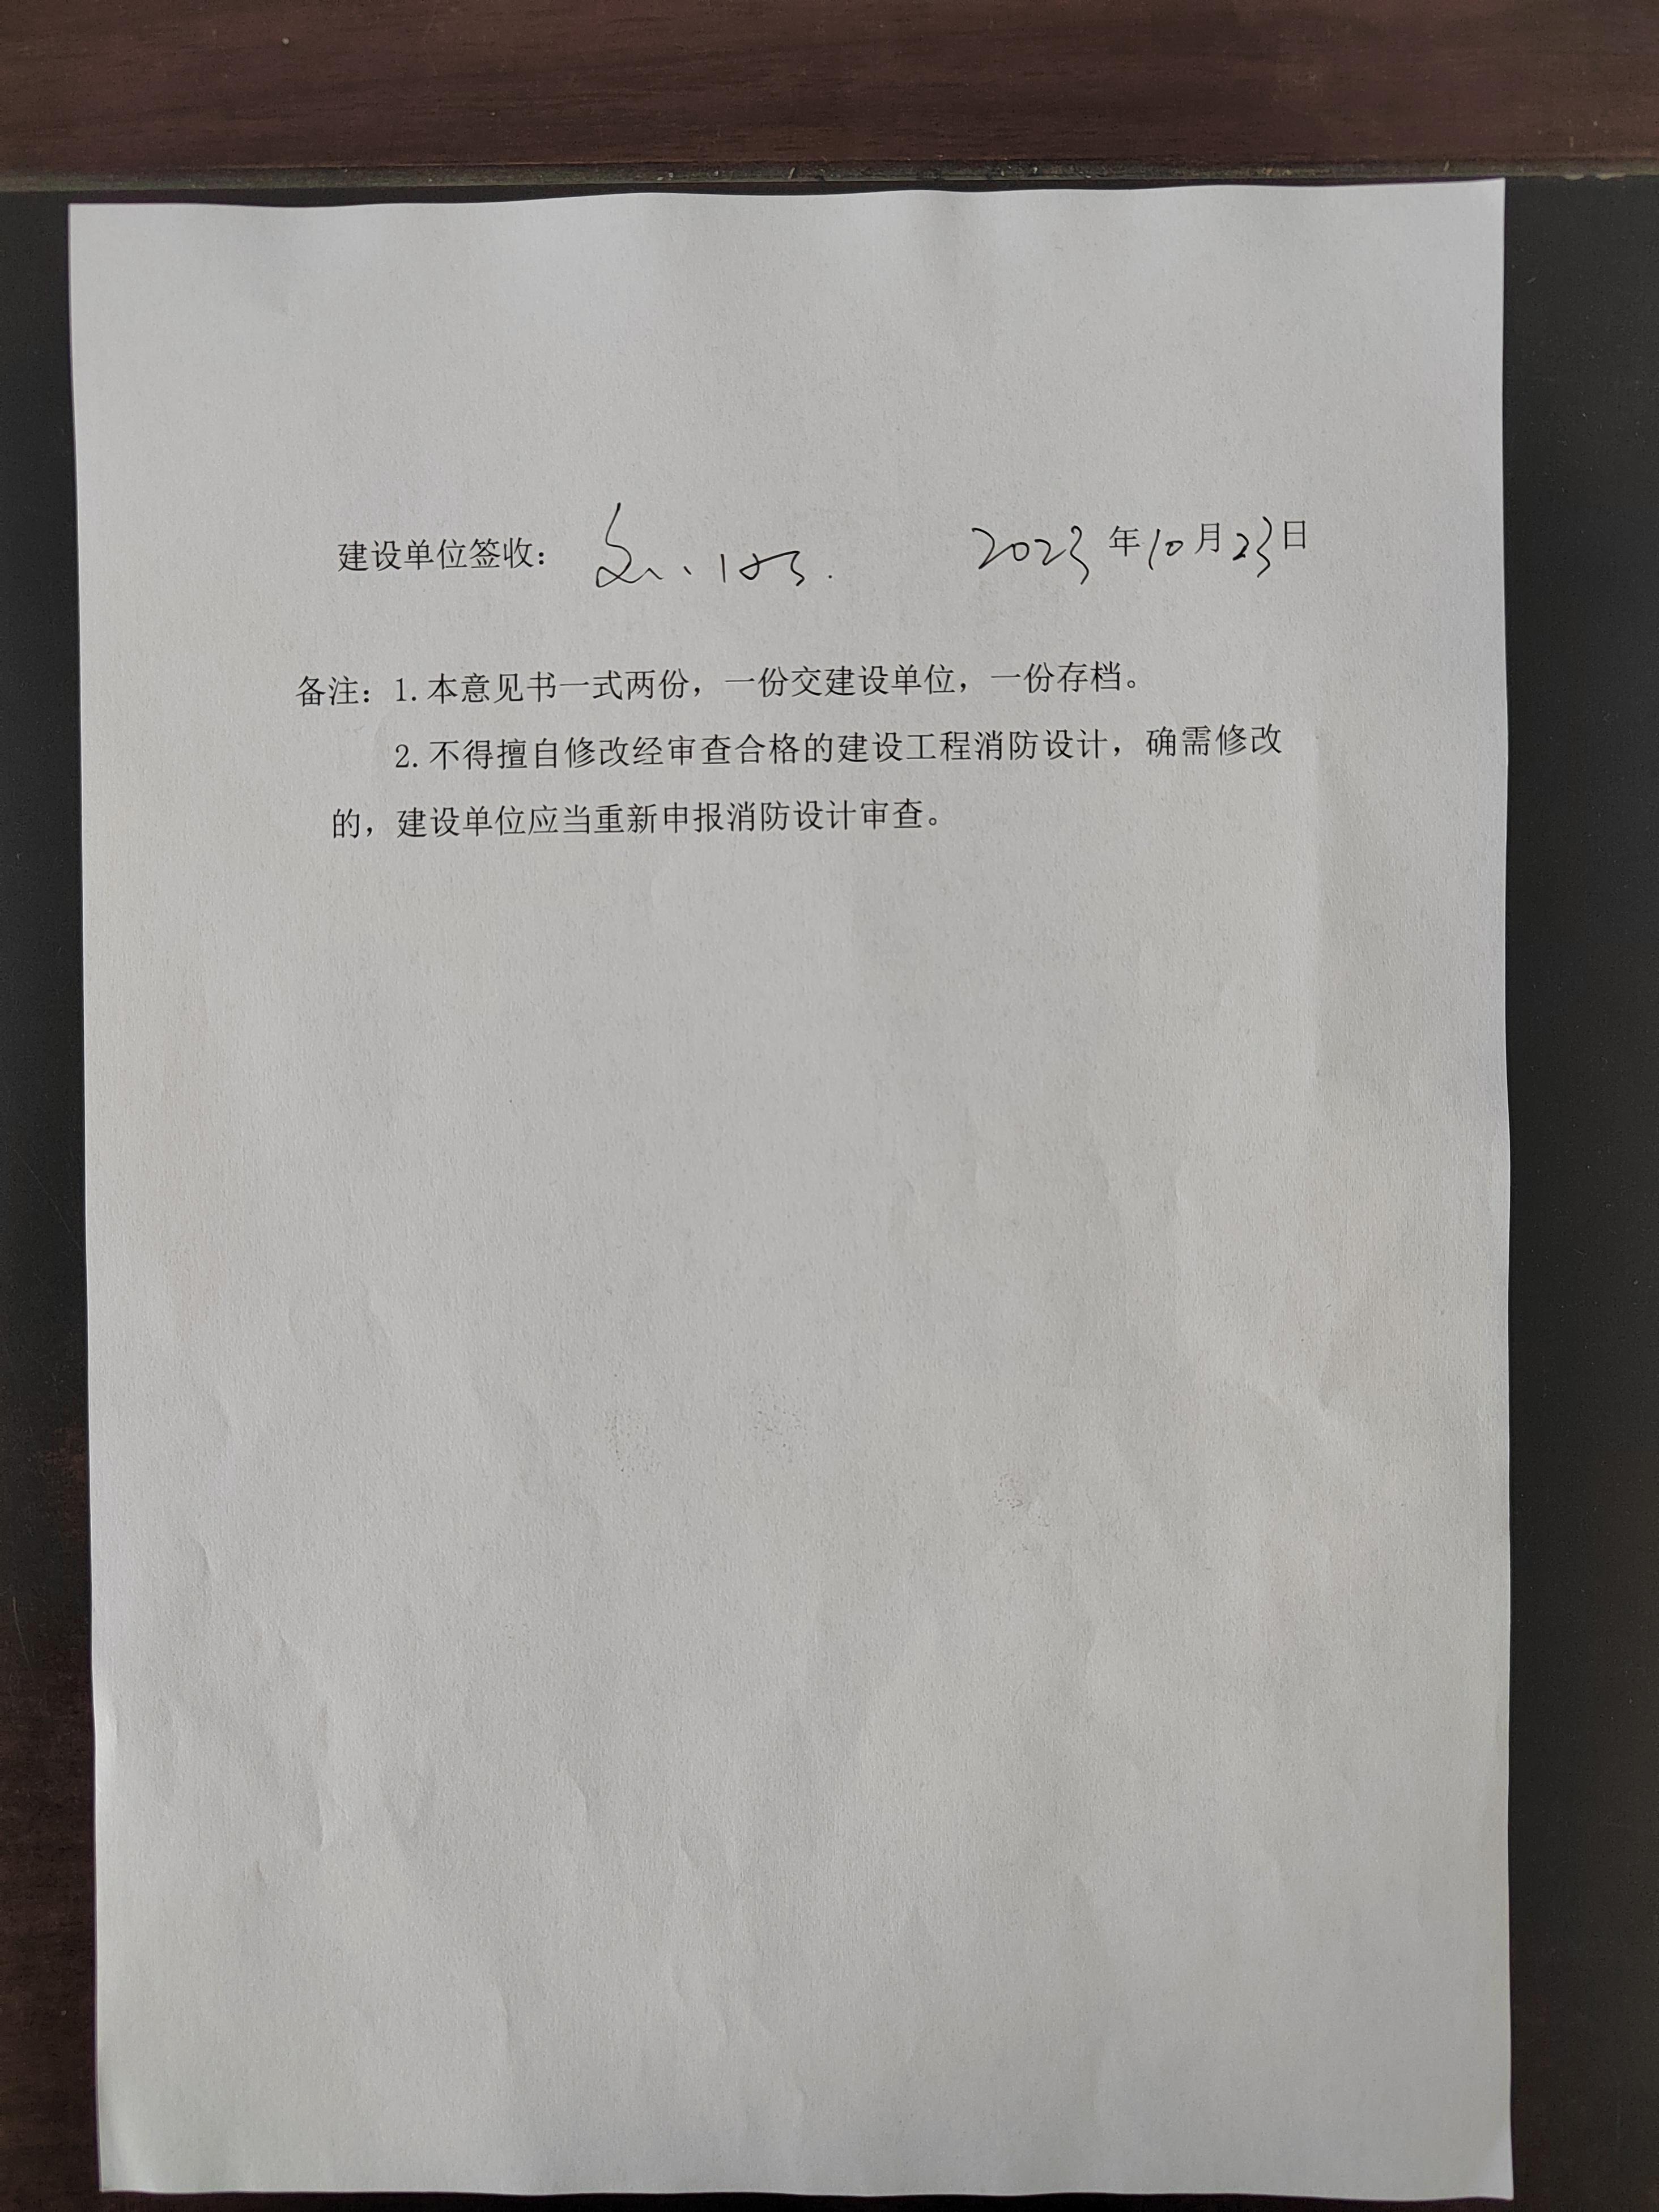 建设单位签收： 2023年10月23日
备注：1.本意见书一式两份，一份交建设单位，一份存档。
2.不得擅自修改经审查合格的建设工程消防设计，确需修改
的，建设单位应当重新申报消防设计审查。